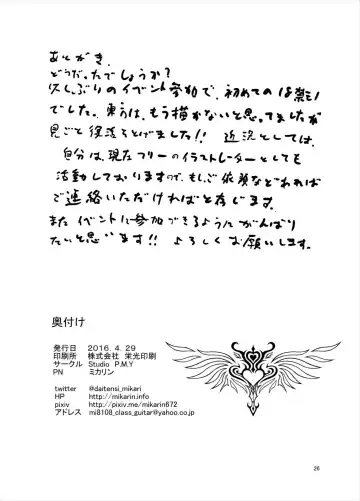 あとがき
どうだったでしょうか?
久しぶりのイベント参加で、初めての18禁!
でした。東方は、もう描かないと思ってましたが
見ごと復活とげました!! 近況としては、
自分は、現在フリーのイラストレーターとしても
活動しておりますので、もしご依頼などあれば
ご連絡いただければと存じます。
またイベントに参加できるようにがんばり
たいと思います!! よろしくお願いします。
奥付け
発行日 2016.4.29
印刷所 株式会社 栄光印刷
サークル Studio P.M.Y
PN ミカリン
twitter @daitensi_mikari
HP http://mikarin.info
pixiv http://pixiv.me/mikarin672
アドレス mi8108_class_guitar@yahoo.co.jp
26